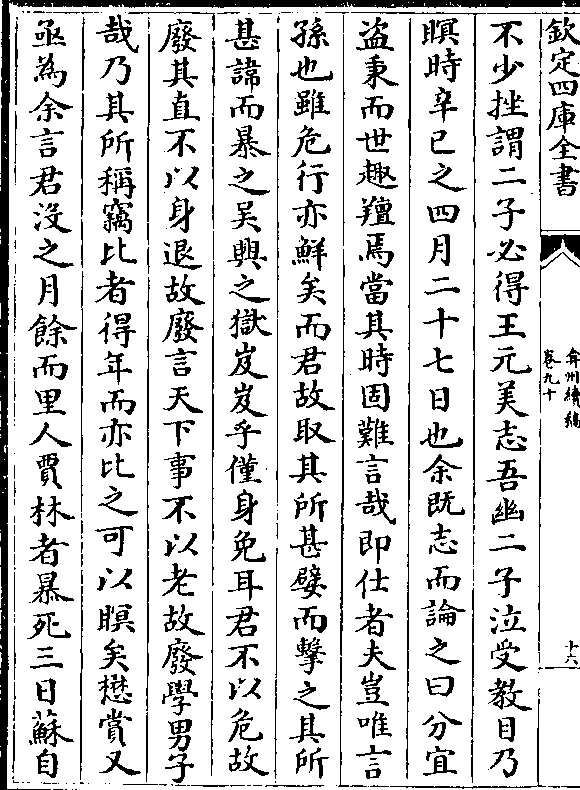 欽定四庫全書
弇州續稿
卷九十
十六
不少挫謂二子必得王元美志吾幽二子泣受教目乃
瞑時辛巳之四月二十七日也余既志而論之曰分宜
盜秉而世趣羶焉當其時固難言哉即仕者夫豈唯言
孫也雖危行亦鮮矣而君故取其所甚嬖而擊之其所
甚諱而暴之吳興之獄岌岌乎僅身免耳君不以危故
廢其直不以身退故廢言天下事不以老故廢學男子
哉乃其所稱竊比者得年而亦比之可以瞑矣懋賞又
亟為余言君沒之月餘而里人賈林者暴死三日蘇自